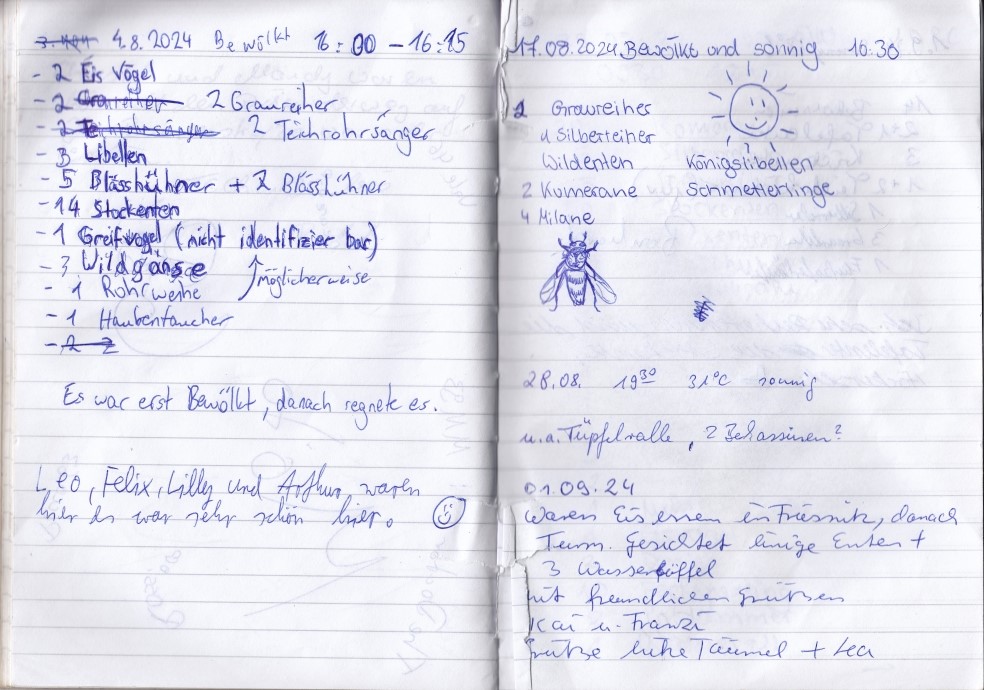 4.8.2024 Bewölkt 16:00 - 16:15
- 2 Eis Vögel
- 2 Graureiher 2 Graureiher
- 2 Teichrohrsänger 2 Teichrohrsänger
- 3 Libellen
- 5 Blässhühner + 7 Blässhühner
- 14 Stockenten
- 1 Greifvogel (nicht identifizier bar)
- 3 Wildgänse möglicherweise
- 1 Rohrweihe
- 1 Haubentaucher
- 2 2
Es war erst Bewölkt, danach regnete es.
Leo, Felix, Lilly und Arthur waren
hier es war sehr schön hier.
17.08.2024 Bewölkt und sonnig 16:30
2 Graureiher
4 Silberreiher
Wildenten Königslibellen
2 Kumerane Schmetterlinge
4 Milane
28.08. 19 30 31°C sonnig
u.a. Tüpfelralle, 2 Bekassinen?
01.09.24
Waren Eis essen in Friessnitz, danach
Turm. Gesichtet einige Enten +
3 Wasserböffel
mit freundlichen Grützen
Kai u. Franzi
Grütze Taümel + Lea